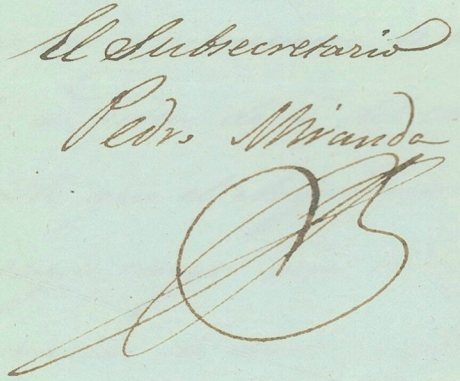 El Subsecretario
Pedro Miranda